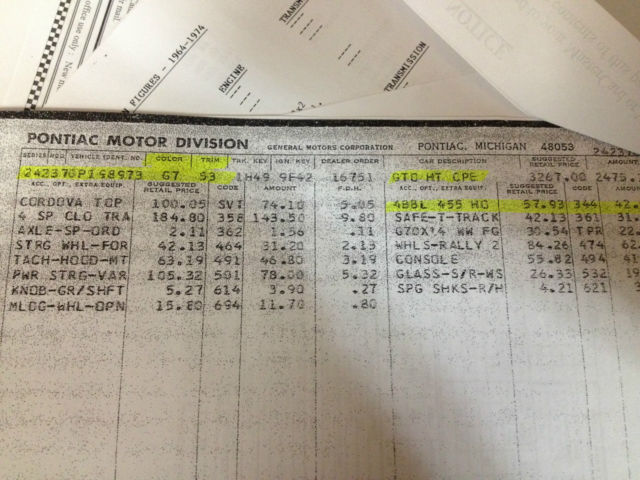 office use only
N FIGURES - 1964-1974
ENGINE
TRANSMISSION
NOTICE
PONTIAC MOTOR DIVISION GENERAL MOTORS CORPORATION PONTIAC, MICHIGAN 48053
VEHICLE IDENT. NO. COLOR TRIM TRK. KEY IGN. KEY DEALER ORDER CAR DESCRIPTION SUGGESTED RETAIL PRICE AMOUNT
242370P198973 G7 S3 1H49 9F42 16751 GTO HT CPE 3267.00
ACC., OPT., EXTRA EQUIP. SUGGESTED RETAIL PRICE CODE AMOUNT F.D.H. ACC., OPT., EXTRA EQUIP. SUGGESTED RETAIL PRICE CODE AMOUN
CORDOVA TOP 100.05 SVT 74.10 5.05 4BBL 455 HO 57.93 344 42.
4 SP CLO TRA 184.80 358 143.50 9.80 SAFE-T-TRACK 42.13 361
AXLE-SP-ORD 2.11 362 1.56 .11 G70X14 WW FG TPR
STRG WHL-FOR 42.13 464 31.20 2.13 WHLS-RALLY 2 84.26 474
TACH-HOOD-MT 63.19 491 46.80 3.19 CONSOLE 55.82 494
PWR STRG-VAR 105.32 501 78.00 5.32 GLASS-S/R-WS 26.33 532
KNOB-GR/SHFT 5.27 614 3.90 .27 SPG SHKS-R/H 4.21 621
MLDG-WHL-OPN 15.80 694 11.70 .80